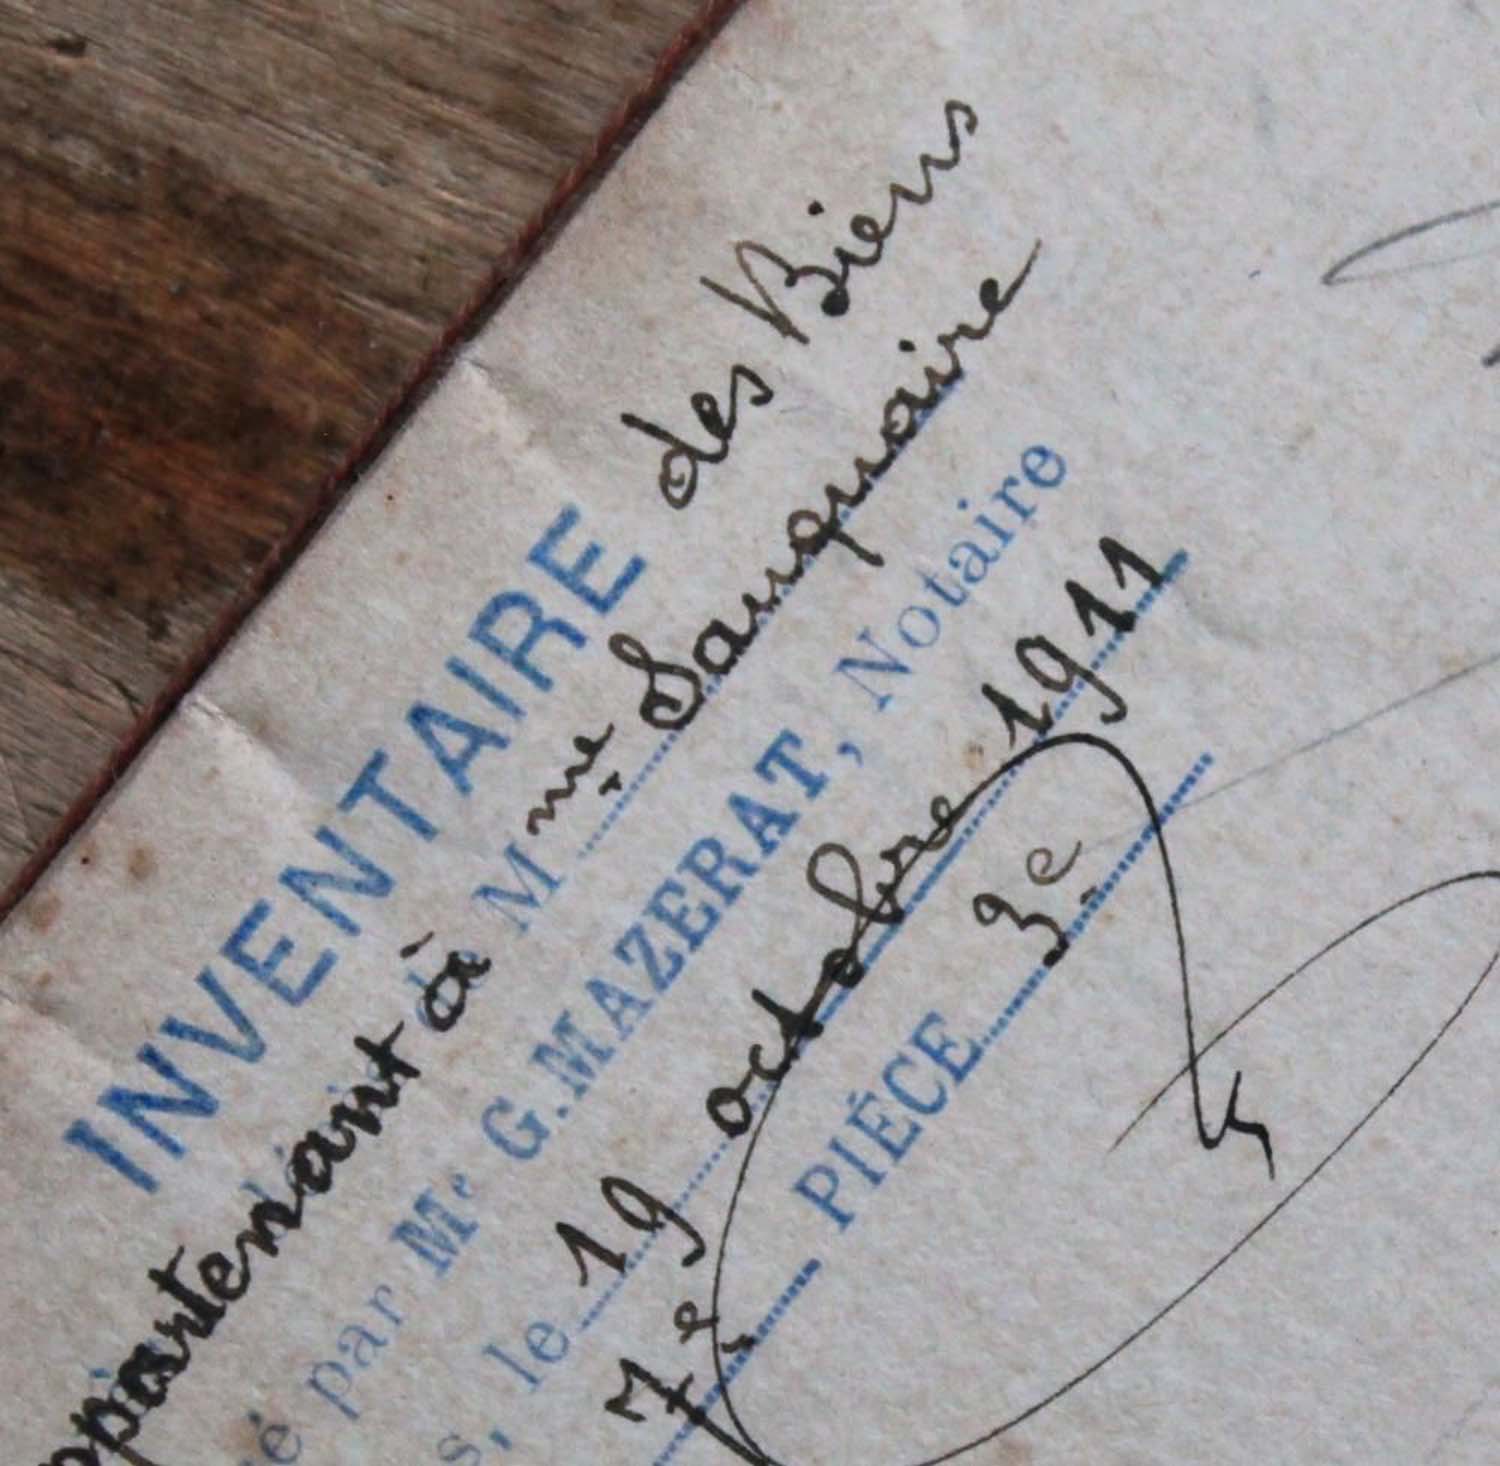 INVENTAIRE des Biens
ppartenant à Mme Sauquaire
é par Me G. MAZERAT, Notaire
s, le 19 octobre 1911
7e PIÉCE 3e